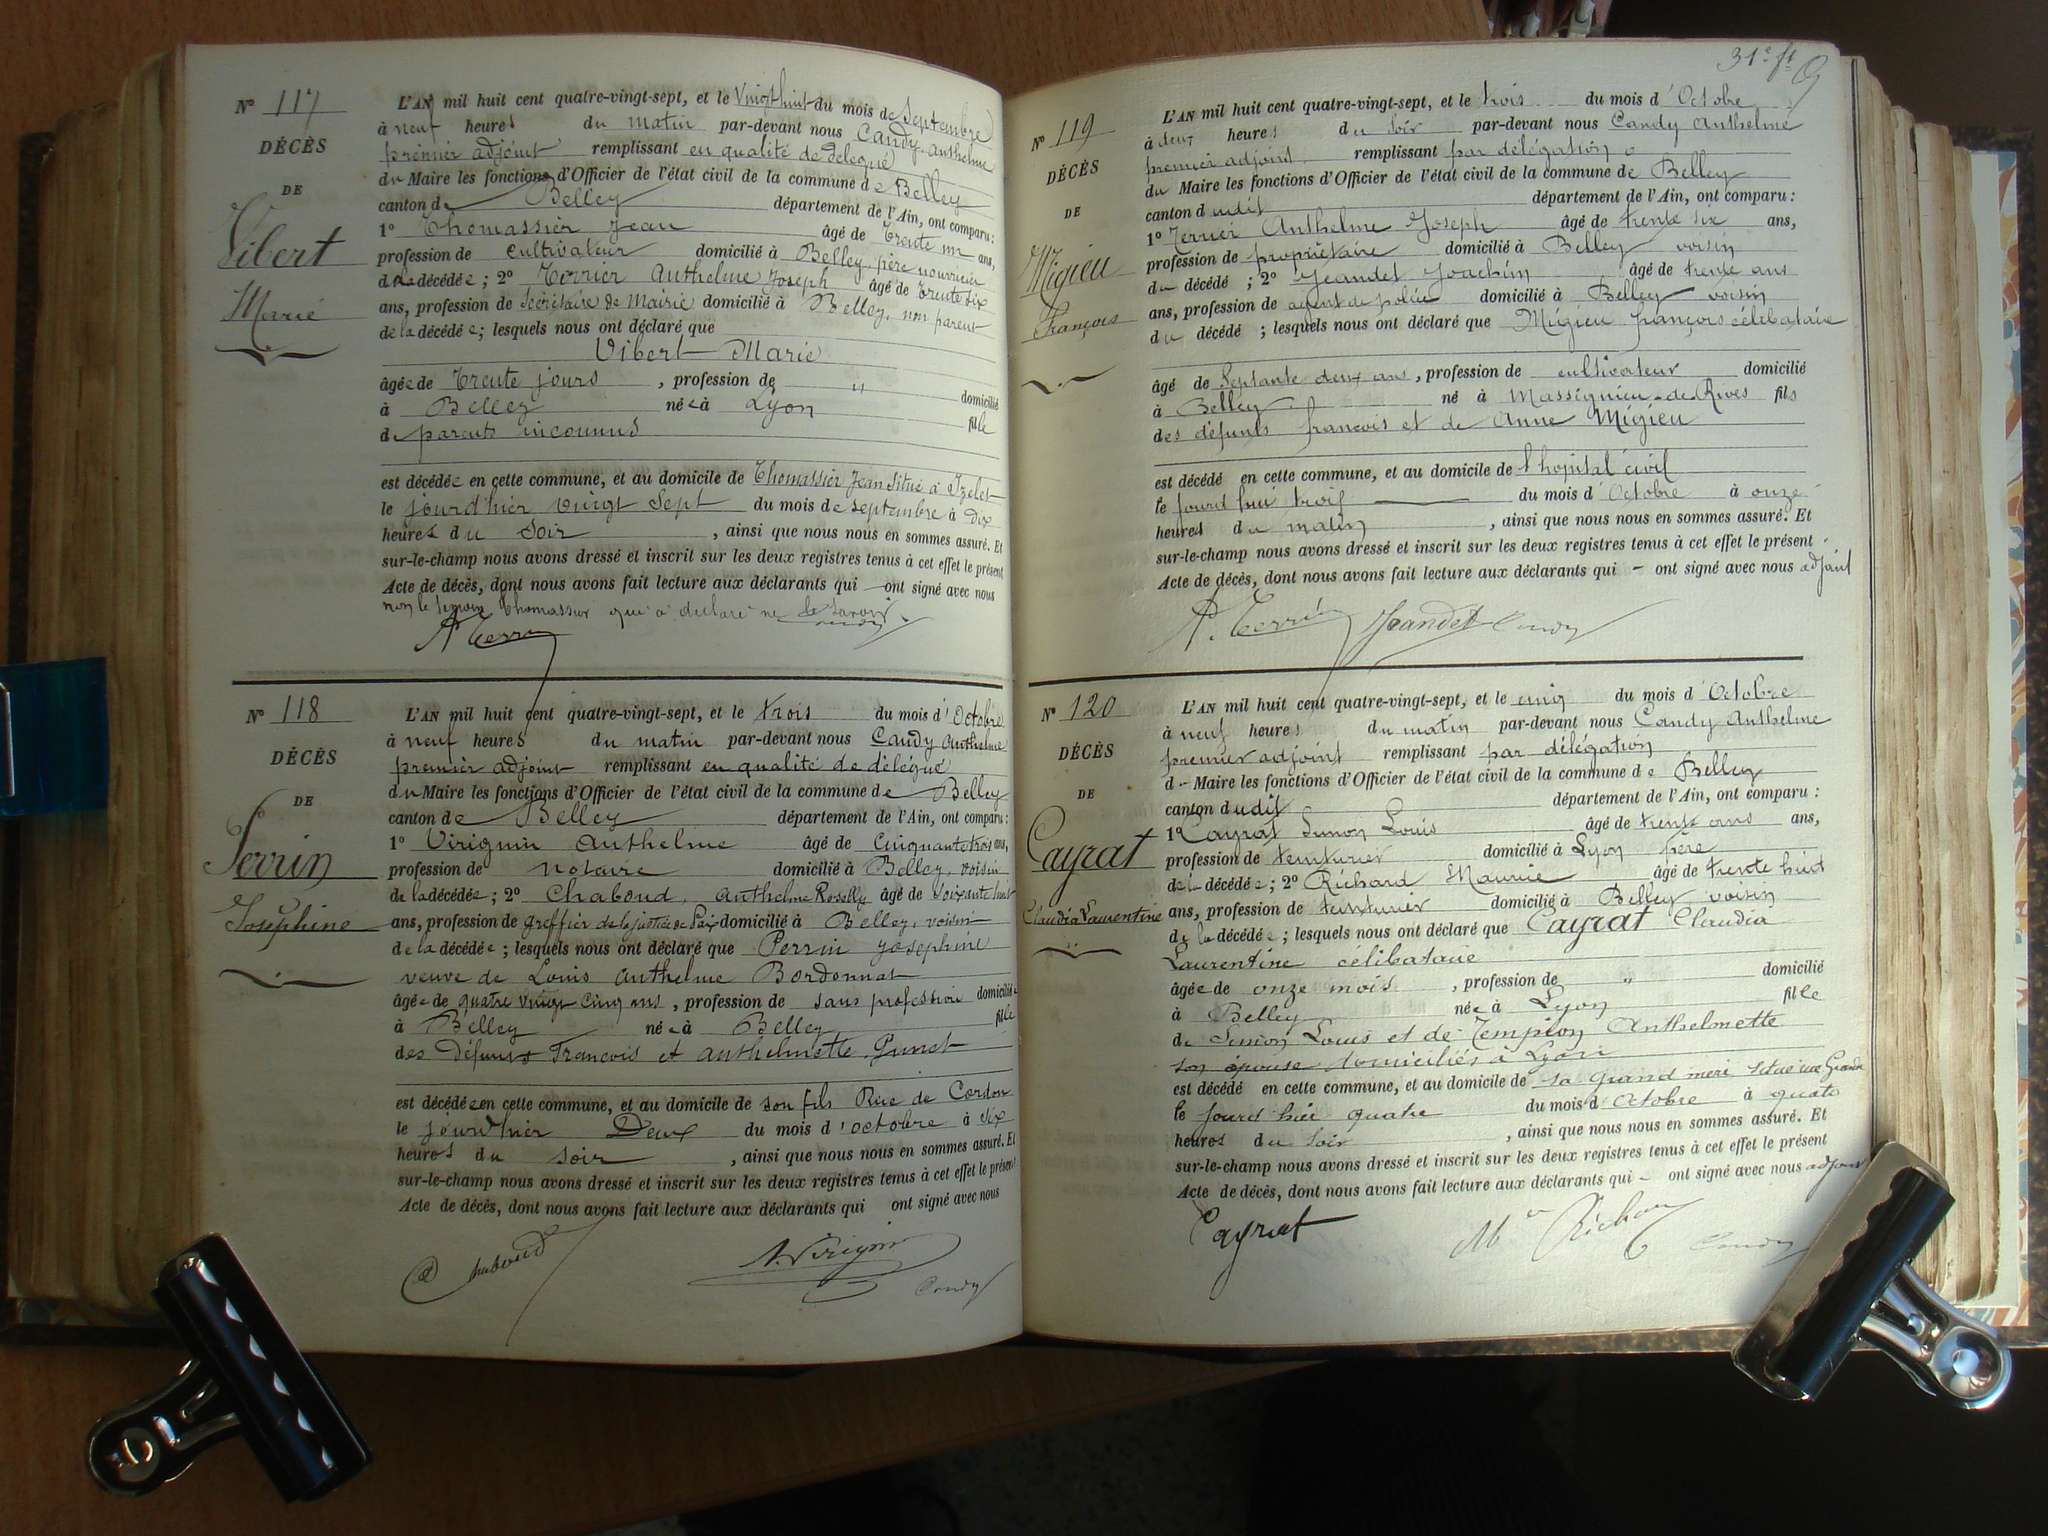 N° 117
DÉCÈS
DE
Vibert
Marie
L'AN mil huit cent quatre-vingt-sept, et le Vingt huit du mois de Septembre
à neuf heures du matin par-devant nous Candy Anthelme
premier adjoint remplissant en qualité de délégué
du Maire les fonctions d'Officier de l'état civil de la commune de Belley
canton de Belley département de l'Ain, ont comparu :
1° Thomassier Jean âgé de Trente un ans,
profession de cultivateur domicilié à Belley, père nourricier
de la décédée ; 2° Terrier Anthelme Joseph âgé de trente six
ans, profession de Secrétaire de Mairie domicilié à Belley, non parent
de la décédée ; lesquels nous ont déclaré que
Vibert Marie
âgée de Trente jours , profession de " domicilié
à Belley née à Lyon fille
de parents inconnus
est décédée en cette commune, et au domicile de Thomassier Jean situé à
le jourd'hier vingt sept du mois de septembre à dix
heures du Soir , ainsi que nous nous en sommes assuré. Et
sur-le-champ nous avons dressé et inscrit sur les deux registres tenus à cet effet le présent
Acte de décès, dont nous avons fait lecture aux déclarants qui ont signé avec nous
non le témoin Thomassier qui a déclaré ne le savoir
Candy
A Terrier
N° 118
DÉCÈS
DE
Perrin
Joséphine
L'AN mil huit cent quatre-vingt-sept, et le trois du mois d'Octobre
à neuf heures du matin par-devant nous Candy Anthelme
premier adjoint remplissant en qualité de délégué
du Maire les fonctions d'Officier de l'état civil de la commune de Belley
canton de Belley département de l'Ain, ont comparu :
1° Virignin Anthelme âgé de Cinquante trois ans,
profession de Notaire domicilié à Belley, voisin
de la décédée ; 2° Chaboud Anthelme âgé de soixante huit
ans, profession de greffier de la justice de Paix domicilié à Belley, voisin
de la décédée ; lesquels nous ont déclaré que Perrin Joséphine
veuve de Louis Anthelme Bordonnat
âgée de quatre vingt cinq ans , profession de sans profession domiciliée
à Belley née à Belley fille
des Défunts François et Anthelmette
est décédée en cette commune, et au domicile de son fils Rue de Cordon
le jourd'hier Deux du mois d'octobre à six
heures du soir , ainsi que nous nous en sommes assuré. Et
sur-le-champ nous avons dressé et inscrit sur les deux registres tenus à cet effet le présent
Acte de décès, dont nous avons fait lecture aux déclarants qui ont signé avec nous
Chaboud A. Virignin
Candy
31e ft
N° 119
DÉCÈS
DE
Migieu
François
L'AN mil huit cent quatre-vingt-sept, et le trois du mois d'Octobre
à deux heures du Soir par-devant nous Candy Anthelme
premier adjoint remplissant par délégation
du Maire les fonctions d'Officier de l'état civil de la commune de Belley
canton dudit département de l'Ain, ont comparu :
1° Terrier Anthelme Joseph âgé de trente six ans,
profession de propriétaire domicilié à Belley voisin
du décédé ; 2° Jeandet Joachim âgé de trente ans
ans, profession de agent de police domicilié à Belley voisin
du décédé ; lesquels nous ont déclaré que Migieu françois célibataire
âgé de Septante deux ans , profession de cultivateur domicilié
à Belley né à Massignieu-de-Rives fils
des défunts françois et de Anne Migieu
est décédé en cette commune, et au domicile de l'hopital civil
le jourd'hui trois du mois d'Octobre à onze
heures du matin , ainsi que nous nous en sommes assuré. Et
sur-le-champ nous avons dressé et inscrit sur les deux registres tenus à cet effet le présent
Acte de décès, dont nous avons fait lecture aux déclarants qui – ont signé avec nous adjoint
A. Terrier Jeandet Candy
N° 120
DÉCÈS
DE
Cayrat
Claudia Laurentine
L'AN mil huit cent quatre-vingt-sept, et le cinq du mois d'Octobre
à neuf heures du matin par-devant nous Candy Anthelme
premier adjoint remplissant par délégation
d – Maire les fonctions d'Officier de l'état civil de la commune de Belley
canton dudit département de l'Ain, ont comparu :
1° Cayrat Simon Louis âgé de trente ans ans,
profession de teinturier domicilié à Lyon père
de la décédée ; 2° Richard Maurice âgé de trente huit
ans, profession de teinturier domicilié à Belley voisin
de la décédée ; lesquels nous ont déclaré que Cayrat Claudia
Laurentine célibataire
âgée de onze mois , profession de " domicilié
à Belley née à Lyon fille
de Simon Louis et de Templon Anthelmette
son épouse domiciliés à Lyon
est décédé en cette commune, et au domicile de sa grand mère située rue Grande
le jourd'hier quatre du mois d'Octobre à quatre
heures du Soir , ainsi que nous nous en sommes assuré. Et
sur-le-champ nous avons dressé et inscrit sur les deux registres tenus à cet effet le présent
Acte de décès, dont nous avons fait lecture aux déclarants qui – ont signé avec nous adjoint
Cayrat Mce Richard Candy